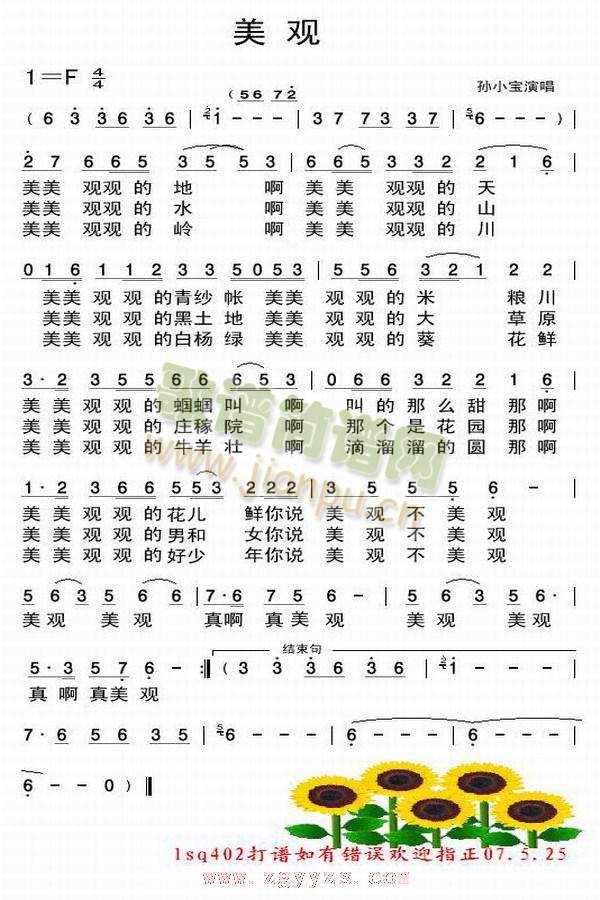 美 观
1=F 4/4
孙小宝演唱
(56 72
( 6 3 36 36 | 1 - - - | 37 73 37 | 6 - - - ) |
2 7 6 65 3 5 53 | 6 65 3 32 2 1 6 |
美美 观观 的 地 啊 美美 观观 的 天
美美 观观 的 水 啊 美美 观观 的 山
美美 观观 的 岭 啊 美美 观观 的 川
016 112 3 3 5 5053 | 556 321 2 2 |
美美 观观 的青纱 帐 美美 观观 的 米 粮川
美美 观观 的黑土 地 美美 观观 的 大 草原
美美 观观 的白杨 绿 美美 观观 的 葵 花鲜
3·2 355 66 653 | 066 322 2 1 6 |
美美观观的 蝈蝈叫 啊 叫的那么甜 那啊
美美观观的 庄稼院 啊 那个是花园 那啊
美美观观的 牛羊壮 啊 滴溜溜的圆 那啊
1·2 366 553 222 | 3 5 5 5 6 - |
美美观观的花儿 鲜你说 美 观 不 美观
美美观观的男和 女你说 美 观 不 美观
美美观观的好少 年你说 美 观 不 美观
5 63 5 63 | 7·6 75 6 - | 5 63 5 63 |
美观 美观 真啊 真美 观 美观 美观
结束句
5·3 57 6 - :‖ ( 3 3 36 36 | 1 - - |
真 啊 真美 观
7·6 56 53 | 6 - - - | 6 - - - | 6 - - - |
6 - - 0 ) ‖
歌谱简谱网
www.jianpu.cn
lsq402打谱如有错误欢迎指正07.5.25
www.zgyyzs.com